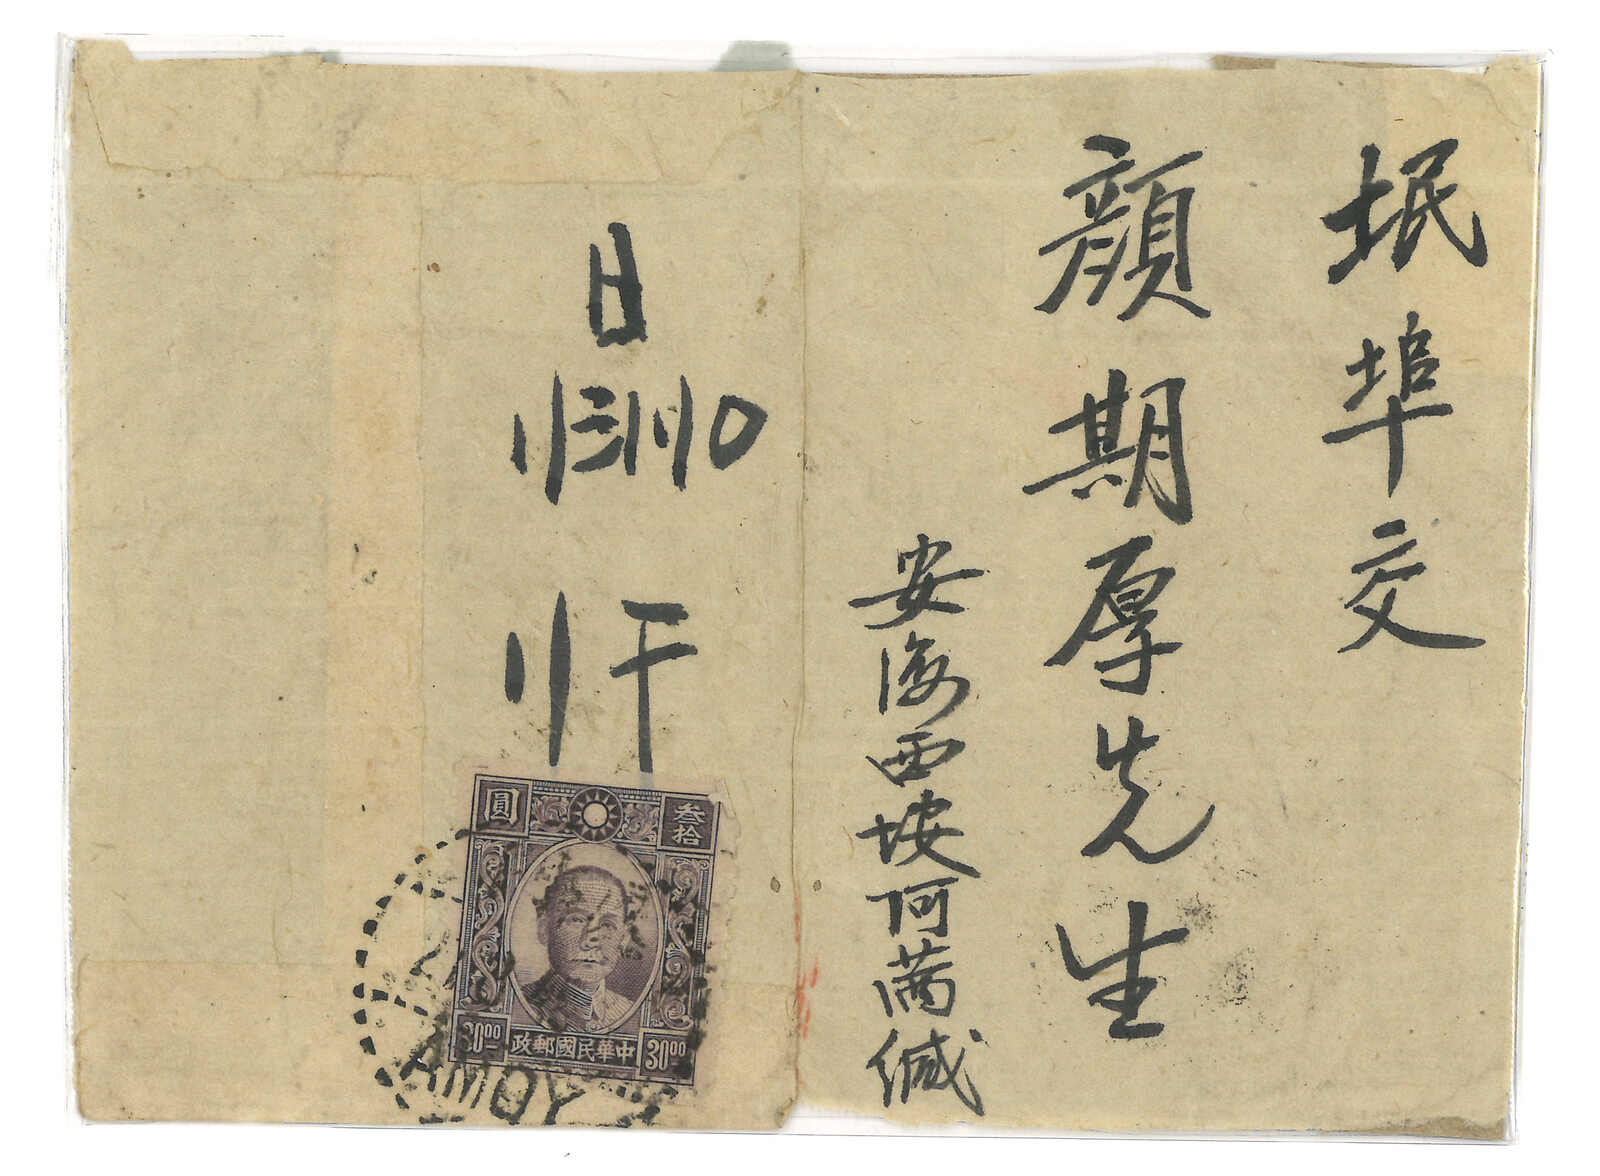 垊埠交
顏期厚先生
安海西垵阿滿緘
日
叁拾
圓
中華民國郵政
30⁰⁰
30⁰⁰
AMOY